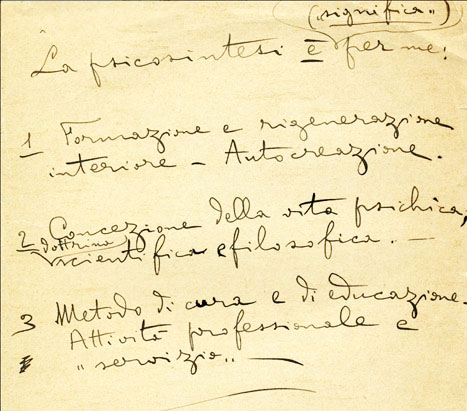 ("significa")
La psicosintesi è per me:
1 Formazione e rigenerazione
interiore – Autocreazione.
2 Concezione della vita psichica,
dottrina
scientifica e filosofica. –
3 Metodo di cura e di educazione.
Attività professionale e
"servizio" —